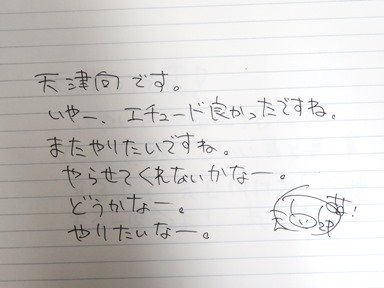 天津向です。
いやー、エチュード良かったですね。
またやりたいですね。
やらせてくれないかなー。
どうかなー。
やりたいなー。